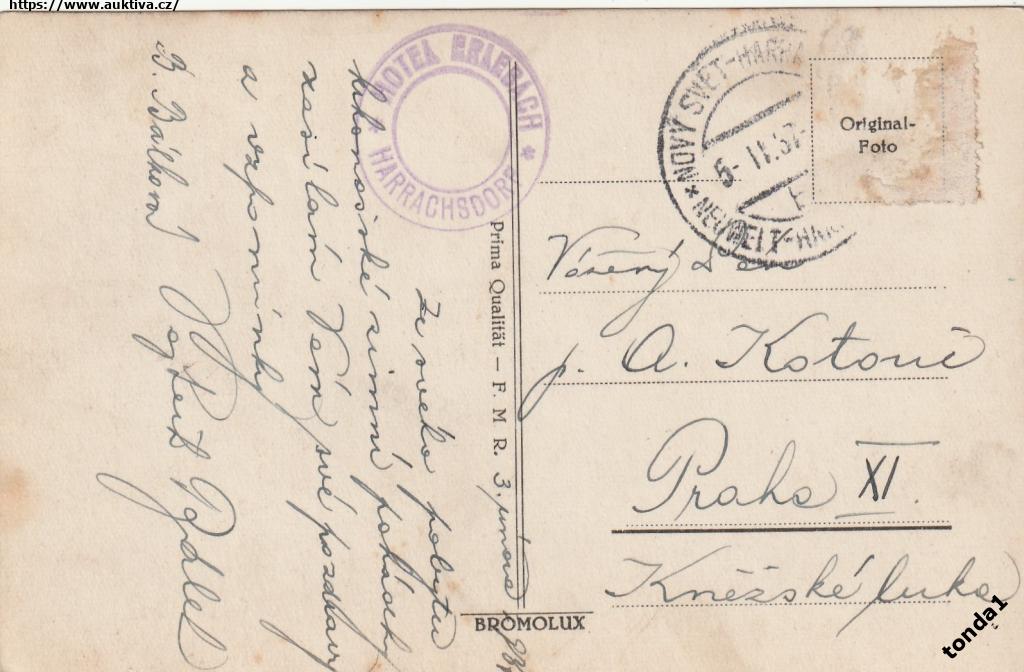 https://www.auktiva.cz/
HOTEL ERLEBACH
* HARRACHSDORF *
NOVÝ SVĚT-HARRA
5- II. 37-
* NEUWELT-HAR
Original-
Foto
Vážený Pán
p. A. Kotouč
Praha XI.
Kněžské luka
Prima Qualität — F. M. R.
BROMOLUX
3. února 1937
Ze svého pobytu
krkonošské zimní pohádky
zasílám Vám své pozdravy
a vzpomínky
B. Bálková
tonda1